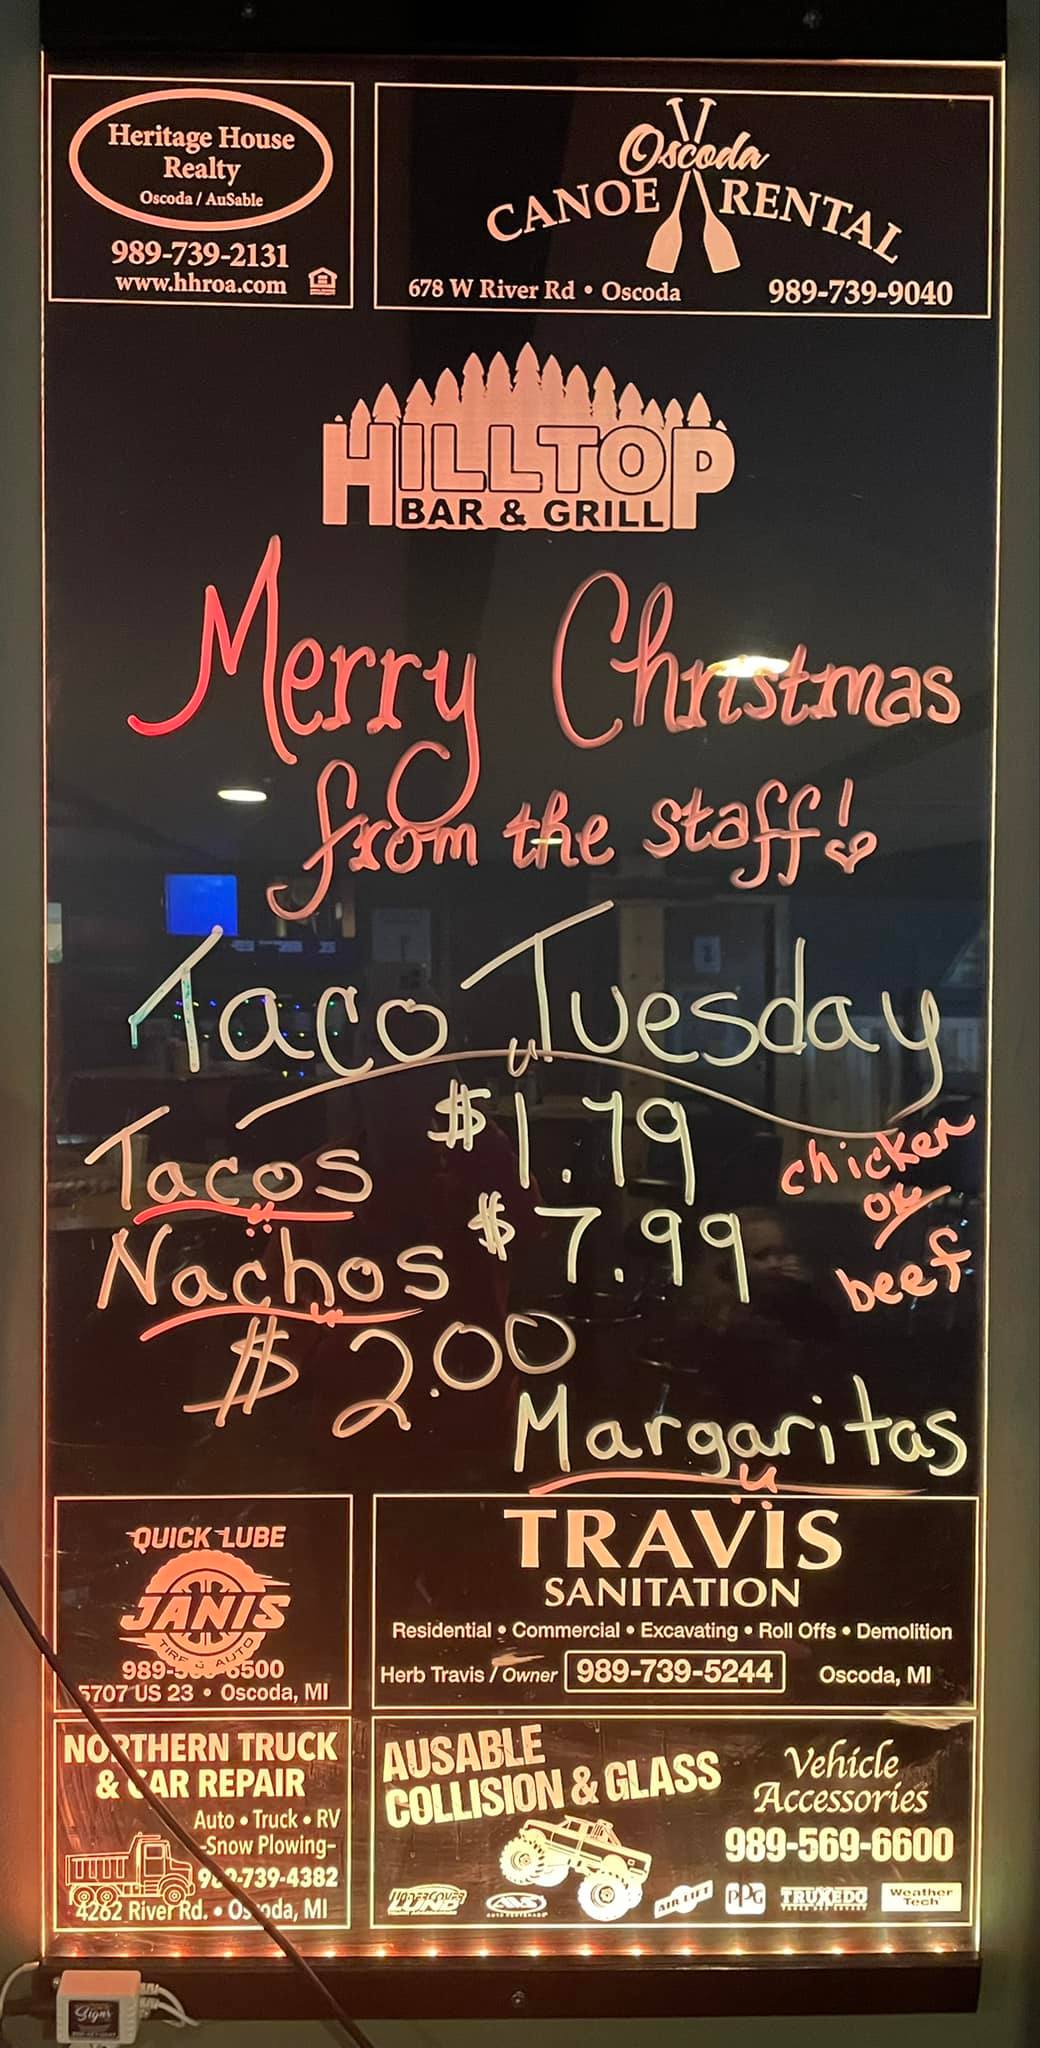 Heritage House
Realty
Oscoda / AuSable
989-739-2131
www.hhroa.com
Oscoda
CANOE RENTAL
678 W River Rd • Oscoda 989-739-9040
HILLTOP
BAR & GRILL
Merry Christmas
from the staff!
Taco Tuesday
Tacos $1.79
Nachos $7.99
chicken
or
beef
$2.00
Margaritas
QUICK LUBE
JANIS
TIRE & AUTO
5707 US 23 • Oscoda, MI
TRAVIS
SANITATION
Residential • Commercial • Excavating • Roll Offs • Demolition
Herb Travis / Owner 989-739-5244 Oscoda, MI
NORTHERN TRUCK
& CAR REPAIR
Auto • Truck • RV
-Snow Plowing-
4262 River Rd. • Oscoda, MI
AUSABLE
COLLISION & GLASS
Vehicle
Accessories
989-569-6600
UNDERCOVER
LUND
AIR LIFT
PPG
TRUXEDO
Weather
Tech
Signs